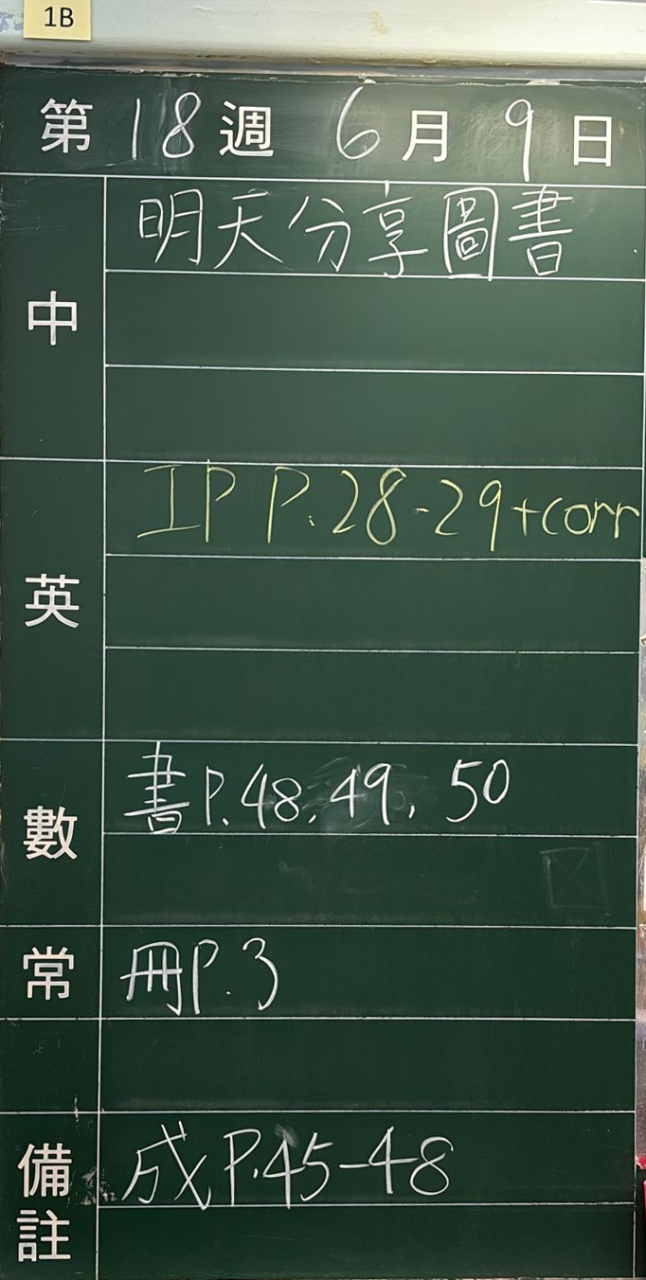 1B
第 18 週 6 月 9 日
中 明天分享圖書
英 IP P.28-29+corr
數 書P.48,49,50
常 冊P.3
備註 成P.45-48